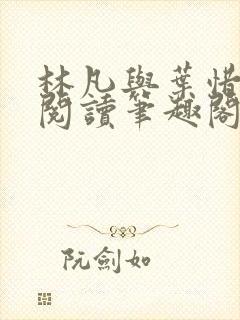 林凡與葉惜
閱讀筆趣閣
阮劍如